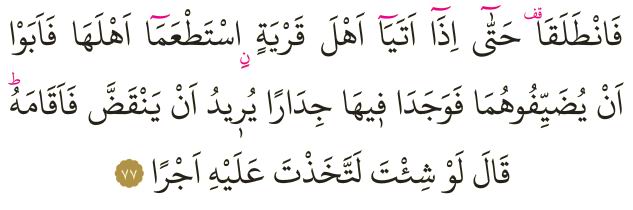 فَانْطَلَقَا۠ حَتّٰٓى اِذَٓا اَتَيَٓا اَهْلَ قَرْيَةٍۨ اسْتَطْعَمَٓا اَهْلَهَا فَاَبَوْا
اَنْ يُضَيِّفُوهُمَا فَوَجَدَا فٖيهَا جِدَارًا يُرٖيدُ اَنْ يَنْقَضَّ فَاَقَامَهُؕ
قَالَ لَوْ شِئْتَ لَتَّخَذْتَ عَلَيْهِ اَجْرًا ﴿٧٧﴾